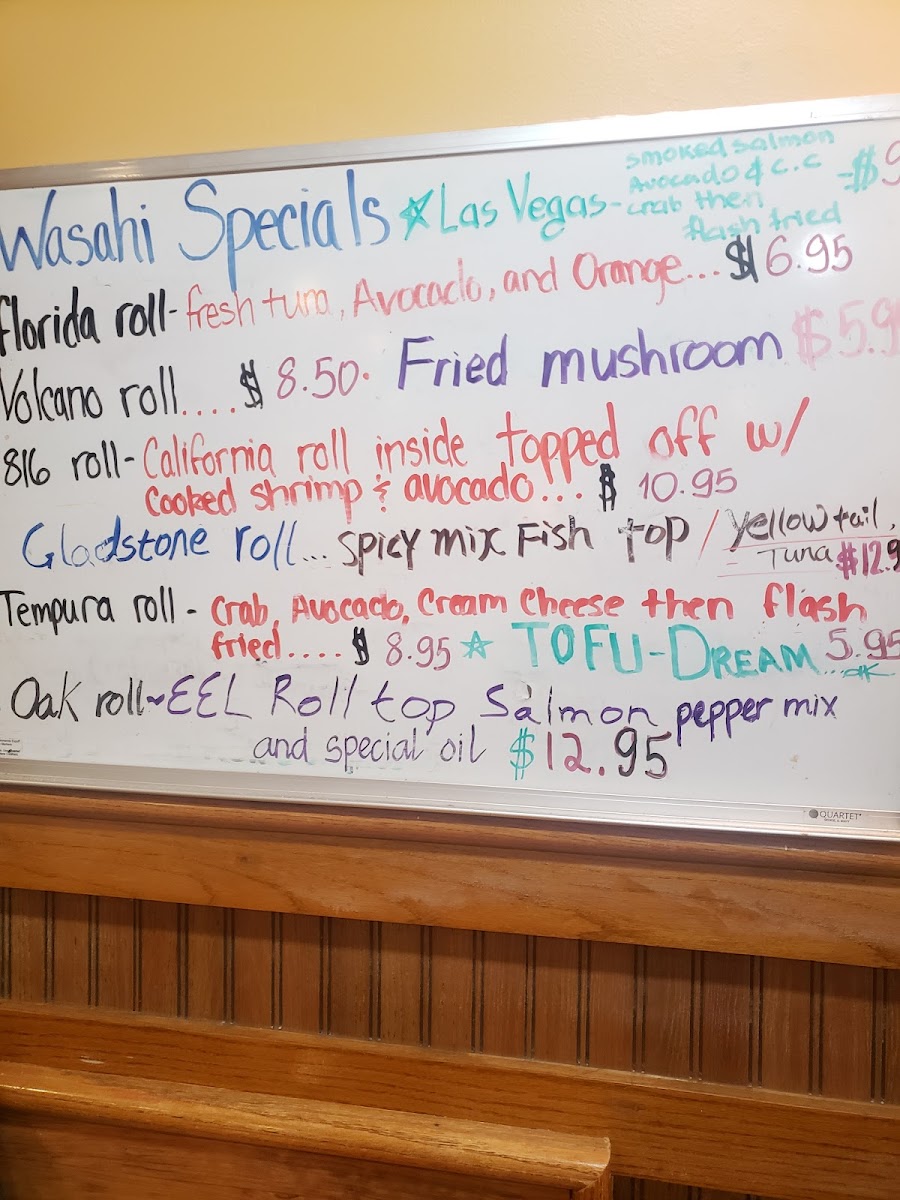 Wasahi Specials ☆ Las Vegas - smoked salmon
Avocado & c.c - $9
crab then
flash fried
Florida roll - fresh tuna, Avocado, and Orange... $16.95
Volcano roll.... $8.50. Fried mushroom $5.9
816 roll - California roll inside topped off w/
Cooked shrimp & avocado!... $10.95
Gladstone roll... spicy mix Fish top / yellowtail,
- Tuna $12.9
Tempura roll - Crab, Avocado, Cream Cheese then flash
fried.... $8.95 ☆ TOFU-DREAM... 5.95
Oak roll ~ EEL Roll top Salmon pepper mix
and special oil $12.95
QUARTET